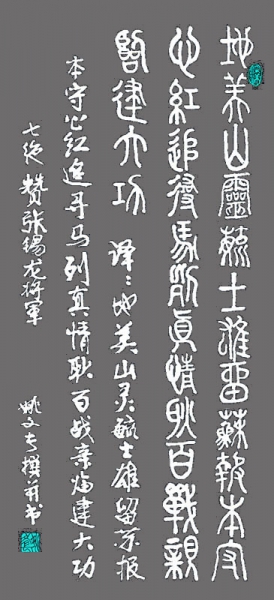 地美山靈毓士雄留蘇報本守
心紅追尋馬列真情耿百戰親
建大功 译：地美山灵毓士雄留苏报
本守心红追寻马列真情耿百战亲建大功
七绝 赞张锡龙将軍
姚文撰并书